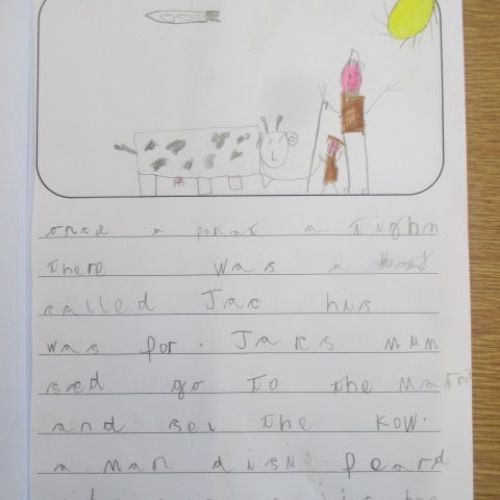 once a ponat a tighm
there was a
called Jac his
was por. Jacs mum
sed go to the
and sel the kow.
a man disu peard